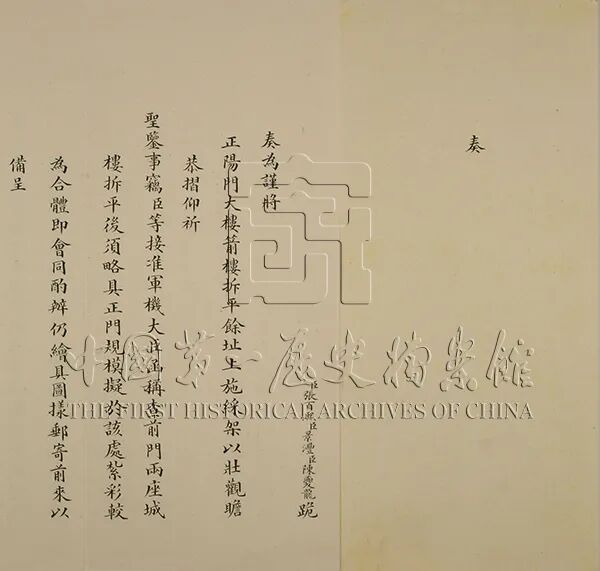 奏
臣張百熙臣景灃臣陳夔龍跪
奏為謹將
正陽門大樓箭樓拆平餘址上施綵架以壯觀瞻
恭摺仰祈
聖鑒事竊臣等接准軍機大臣函稱查前門兩座城
樓拆平後須略具正門規模擬於該處紮彩較
為合體即會同酌辦仍繪具圖樣郵寄前來以
備呈
中國第一歷史檔案館
THE FIRST HISTORICAL ARCHIVES OF CHINA